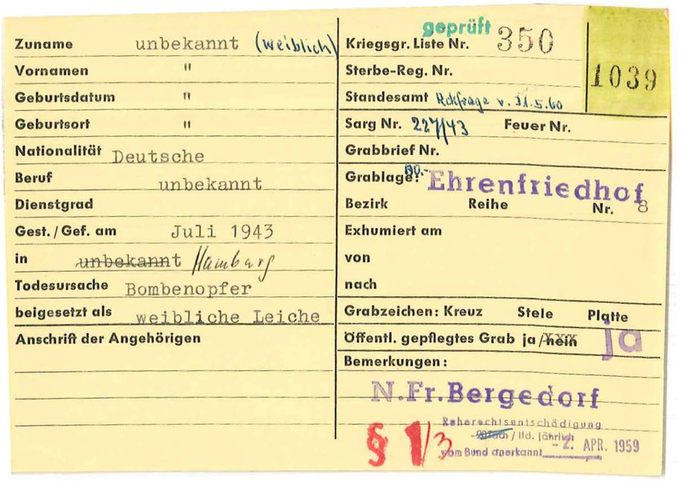 geprüft
Zuname unbekannt (weiblich)
Vornamen "
Geburtsdatum "
Geburtsort "
Nationalität Deutsche
Beruf unbekannt
Dienstgrad
Gest./Gef. am Juli 1943
in unbekannt Hamburg
Todesursache Bombenopfer
beigesetzt als weibliche Leiche
Anschrift der Angehörigen
Kriegsgr. Liste Nr. 350
1039
Sterbe-Reg. Nr.
Standesamt Rckfrage v. 31.5.60
Sarg Nr. 227/43 Feuer Nr.
Grabbrief Nr.
Grablage: Ehrenfriedhof
Bezirk Reihe Nr. 8
Exhumiert am
von
nach
Grabzeichen: Kreuz Stele Platte
Öffentl. gepflegtes Grab ja/nein ja
Bemerkungen:
N.Fr.Bergedorf
Ruherechtsentschädigung
/ lfd. jährlich
vom Bund anerkannt -2. APR. 1959
§ 1/3